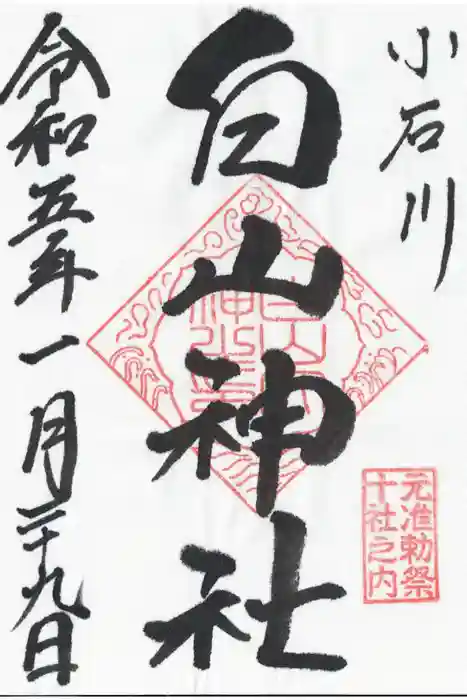 小石川
白山神社
元准勅祭
十社之内
令和五年一月二十九日